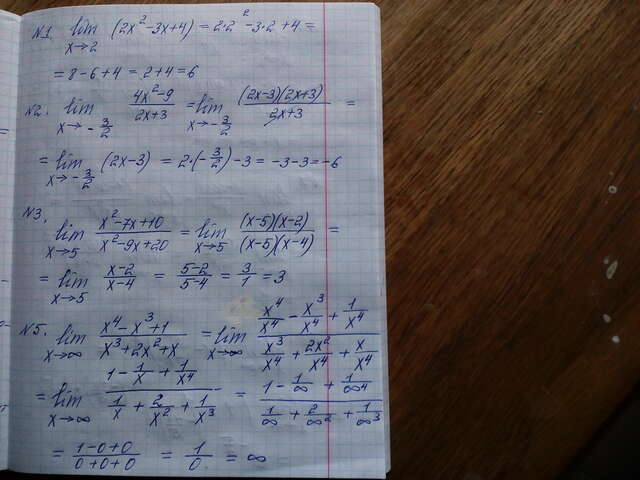 N1. lim x→2 (2x²-3x+4) = 2·2²-3·2+4=
= 8-6+4 = 2+4=6
N2. lim x→-3/2 (4x²-9)/(2x+3) = lim x→-3/2 ((2x-3)(2x+3))/(2x+3) =
= lim x→-3/2 (2x-3) = 2·(-3/2)-3 = -3-3=-6
N3. lim x→5 (x²-7x+10)/(x²-9x+20) = lim x→5 ((x-5)(x-2))/((x-5)(x-4)) =
= lim x→5 (x-2)/(x-4) = (5-2)/(5-4) = 3/1 = 3
N5. lim x→∞ (x⁴-x³+1)/(x³+2x²+x) = lim x→∞ (x⁴/x⁴ - x³/x⁴ + 1/x⁴)/(x³/x⁴ + 2x²/x⁴ + x/x⁴)
= lim x→∞ (1 - 1/x + 1/x⁴)/(1/x + 2/x² + 1/x³) = (1 - 1/∞ + 1/∞⁴)/(1/∞ + 2/∞² + 1/∞³)
= (1-0+0)/(0+0+0) = 1/0 = ∞